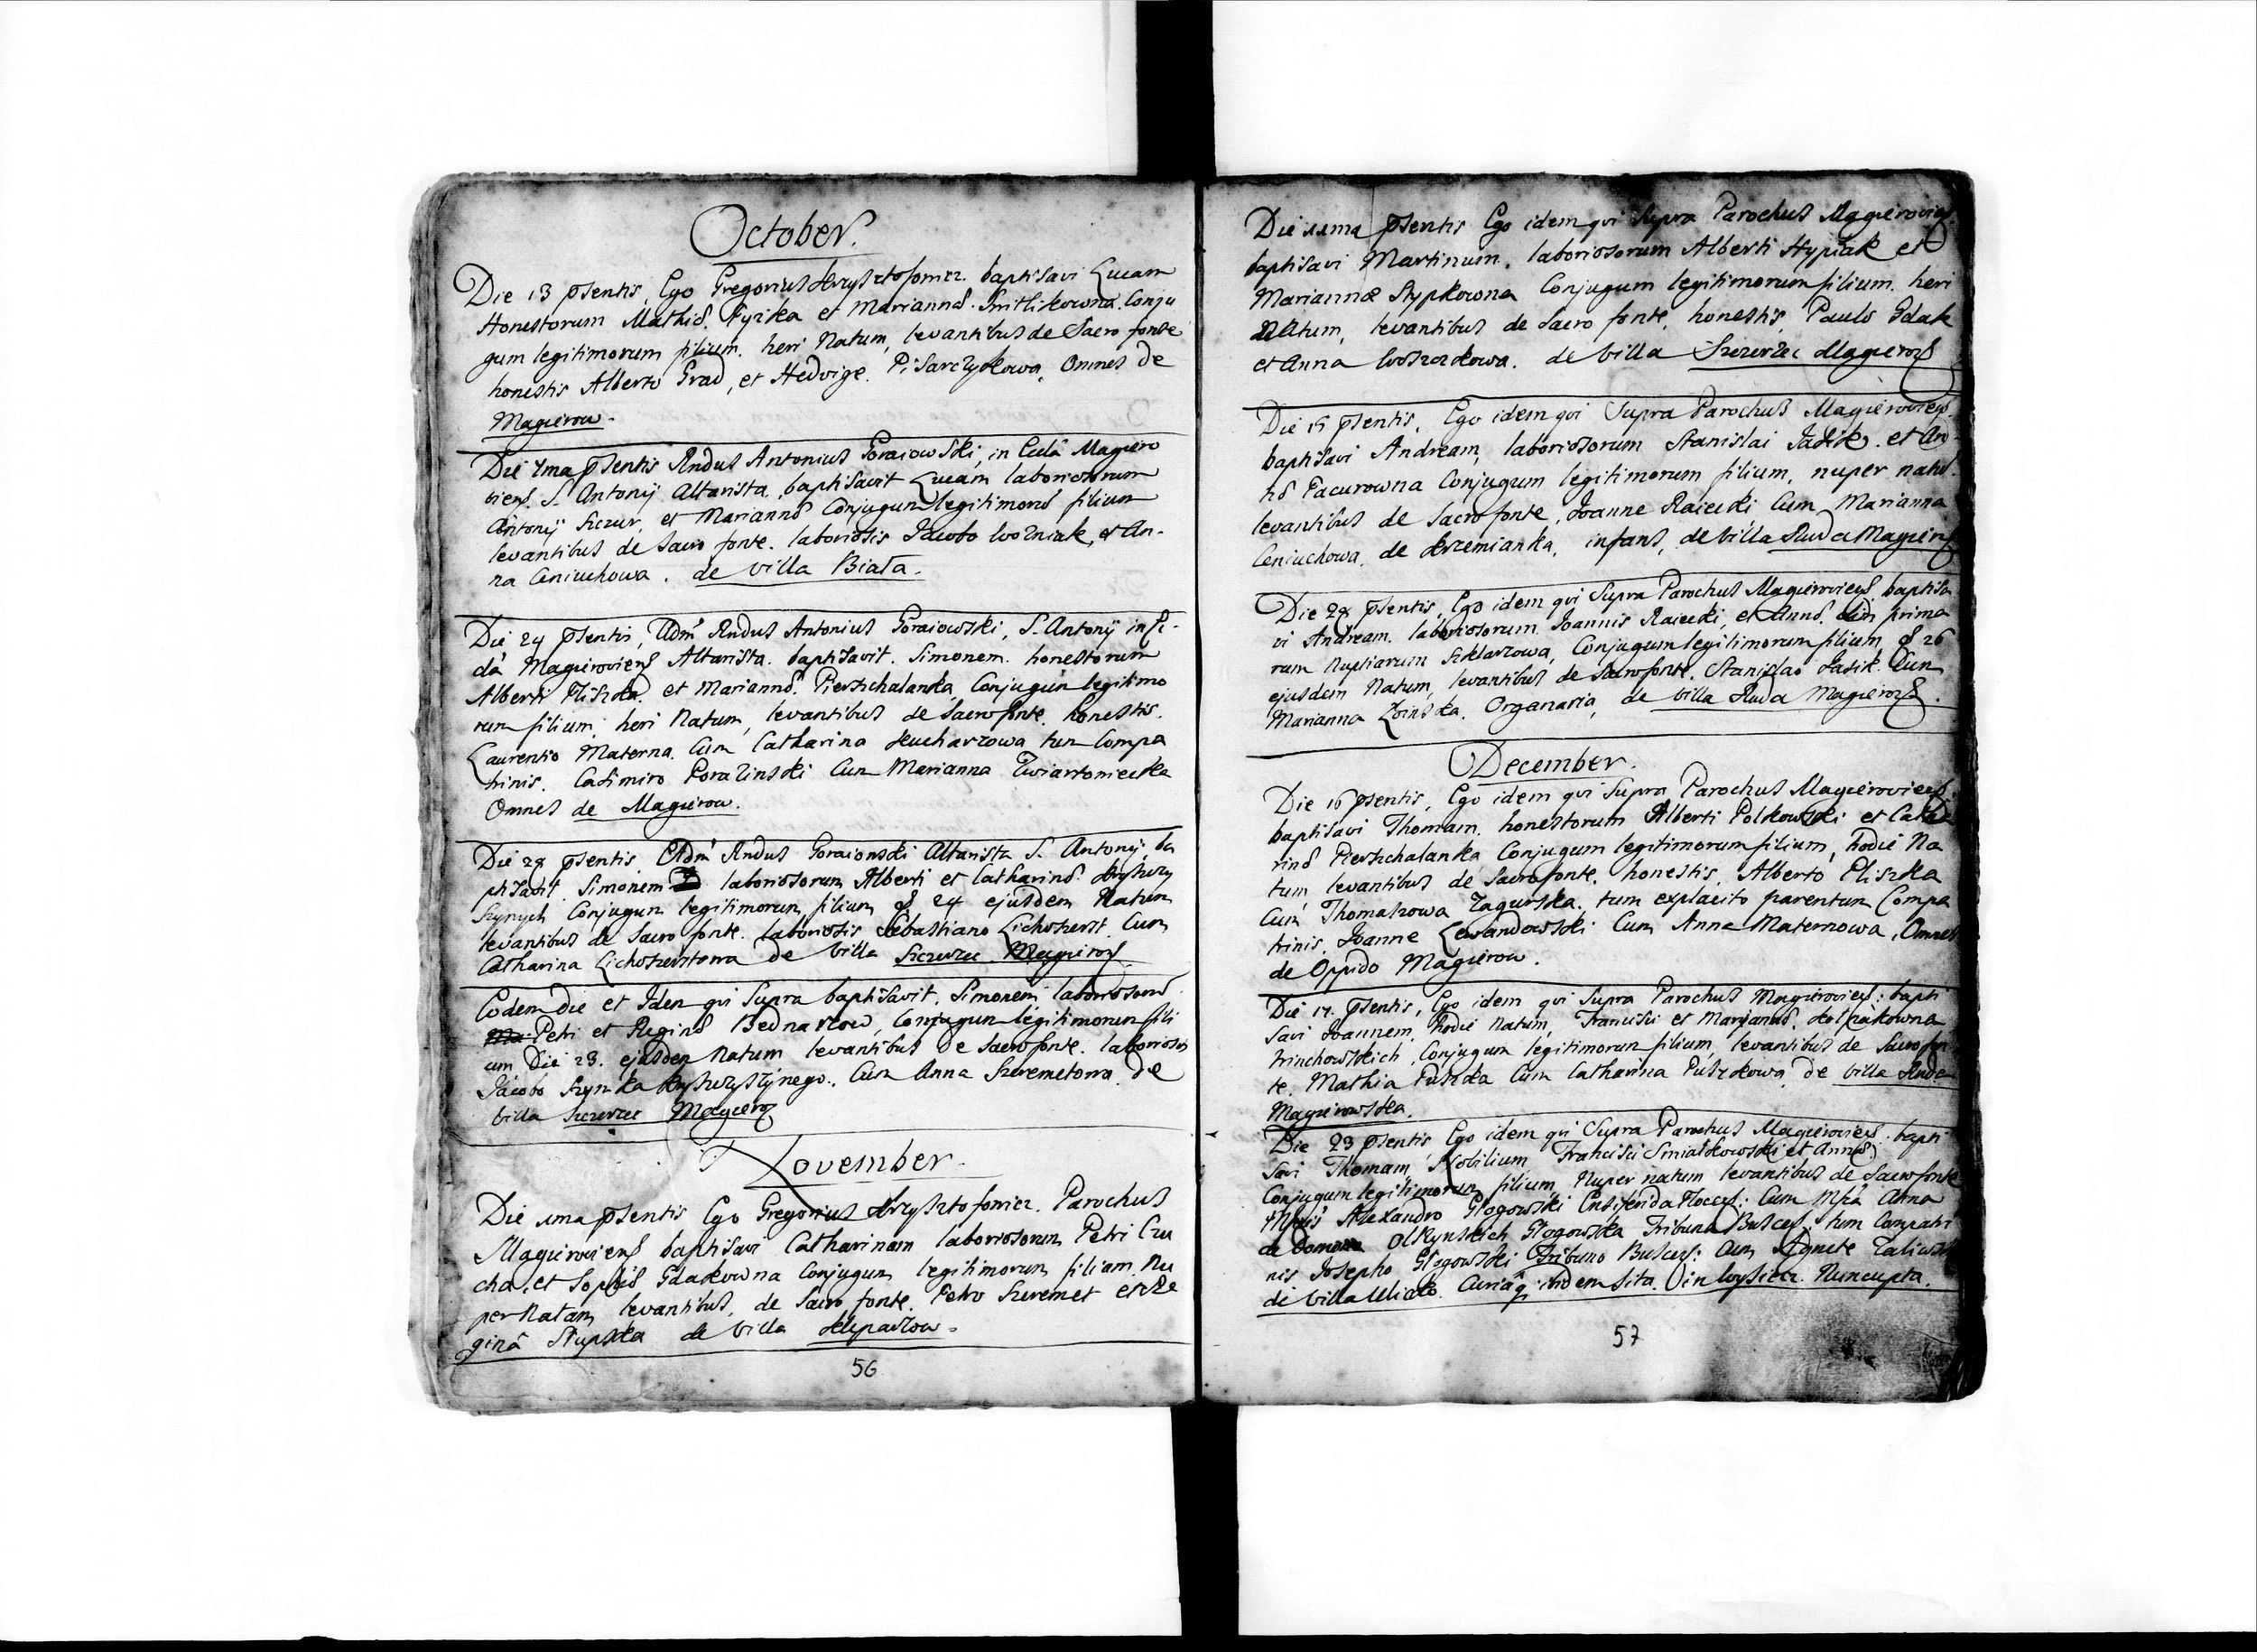 October.
Die 13 psentis, Ego Gregorius Krzysztofowicz. baptisavi Lucam
Honestorum Mathiæ. Pyzka et Mariannæ. Smitlikowna. Conju
gum legitimorum filium. heri Natum, levantibus de Sacro fonte
honestis Alberto Grad, et Hedvige. Pisarczykowa, Omnes de
Magierow.
Die psentis Rndus Antonius Goraiowski, in Ecclâ Magiero
viens. S. Antonij Altarista, baptisavit Lucam laboriosorum
Antonij Szczur, et Mariannæ Conjugum legitimorũ filium
levantibus de Sacro fonte. laboriosis Jacobo Wozniak, et An-
na Ceniuchowa. de villa Biała.
Die 24 psentis, Adm Rndus Antonius Goraiowski, S. Antonij in Ec-
clâ Magieroviens Altarista. baptisavit. Simonem. honestorum
Alberti Pliszka et Mariannæ. Pierzchalanka, Conjugum legitimo
rum filium, heri Natum, levantibus de Sacro fonte. honestis.
Laurentio Materna. Cum Catharina Kucharzowa tum Compa
trinis. Casimiro Porazinski Cum Marianna Kwiatoniecka
Omnes de Magierow.
Die 28 psentis, Adm Rndus Goraionski Altarista S. Antonij, ba
ptisavit. Simonem laboriosorum Alberti et Catharinæ. Krysztzy
szynych Conjugum legitimorum filium 24 ejusdem Natum
levantibus de Sacro fonte. laboriosis Sebastiano Lichoszerst. Cum
Catharina Lichoszerstowa de villa Szczerzec Magierow
Eodem die et Idem qui Supra baptisavit. Simonem laboriosorũ
Petri et Reginæ Bednarzow, Conjugum legitimorum fili
um Die 23. ejusdem Natum levantibus de Sacro fonte. laboriosis
Jacobo Szynka Krysztzyszÿnego., Cum Anna Szeremetowa. de
villa Szczerzec Magierow
November.
Die 1ma psentis Ego Gregorius Krzysztofowicz. Parochus
Magieroviens baptisavi Catharinam laboriosorum, Petri Czu
cha, et Sophiæ Gdakowna Conjugum legitimorum filiam, Nu
per Natam, levantibus, de Sacro fonte. Petro Szeremet et Re
ginâ Słupska de villa
56
Die 11ma psentis Ego idem qui Supra Parochus Magierovien
baptisavi Martinum. laboriosorum Alberti Hypiak et
Mariannæ Sypkowna Conjugum legitimorum filium. heri
Natum, levantibus de Sacro fonte, honestis, Paulo Gdak
et Anna Woszczkowa. de villa Szczerzec Magierow
Die 15 psentis, Ego idem qui Supra Parochus Magieroviens.
baptisavi Andream, laboriosorum Stanislai Jasik. et An
næ Pacurowna Conjugum legitimorum filium, nuper natũ.
levantibus de Sacro fonte, Joanne Raiecki Cum, Marianna
Ceniuchowa, de Krzemianka, infans, de Villa Ruda Magierow
Die 28 psentis, Ego idem qui Supra Parochus Magieroviens, baptisa
vi Andream, laboriosorum. Joannis Raiecki, et Annæ. prima
rum Nuptiarum Szklarzowa, Conjugum legitimorum filium, 26
ejusdem Natum, levantibus de Sacro fonte. Stanislao Jasik. Cum
Marianna Zoinska. Organaria, de villa Ruda Magierow.
December.
Die 16 psentis, Ego idem qui Supra Parochus Magieroviens
baptisavi Thomam. honestorum Alberti Polkowski et Catha
rinæ Pierzchalanka Conjugum legitimorum filium, hodie Na
tum, levantibus de Sacro fonte. honestis. Alberto Pliszka
Cum Thomaszowa Zagurska. tum explacito parentum Compa
trinis. Joanne Lewandowski Cum Anna Maternowa, Omnes
de Oppido Magierow.
Die 17. psentis, Ego idem qui Supra Parochus Magieroviens: bapti
savi Joannem, hodie Natum, Francisci et Mariannæ. Kolzakowna
Hrinchowskich, Conjugum legitimorum filium, levantibus de Sacro fon
te. Mathia Puszka Cum Catharina Puszkowa, de villa Ruda
Magierowska.
Die 23 psentis, Ego idem qui Supra Parochus Magieroviens, bapti
savi Thomam, Nobilium, Francisci Smiałkowski et Annæ
Conjugum legitimorum filium, Nuper natum levantibus de Sacro fonte
Alexandro Głogowski Cum Anna
de Olszynskich Głogowska Tribuna Buscen; tum Compatri
nis Josepho Głogowski Tribuno Buscen: Cum Agnete
de Villa Ulicko. ibidem sita. in Nuncupta.
57